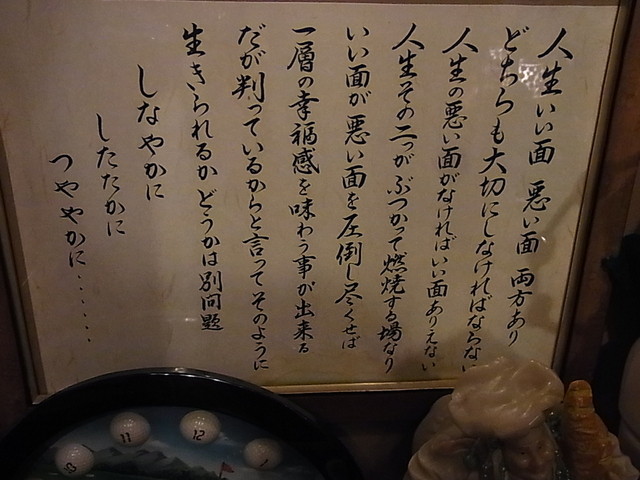 人生いい面 悪い面 両方あり
どちらも大切にしなければならない
人生の悪い面がなければいい面ありえない
人生その二つがぶつかって燃焼する場なり
いい面が悪い面を圧倒し尽くせば
一層の幸福感を味わう事が出来る
だが判っているからと言ってそのように
生きられるかどうかは別問題
しなやかに
したたかに
つややかに・・・・・・
11
12
1